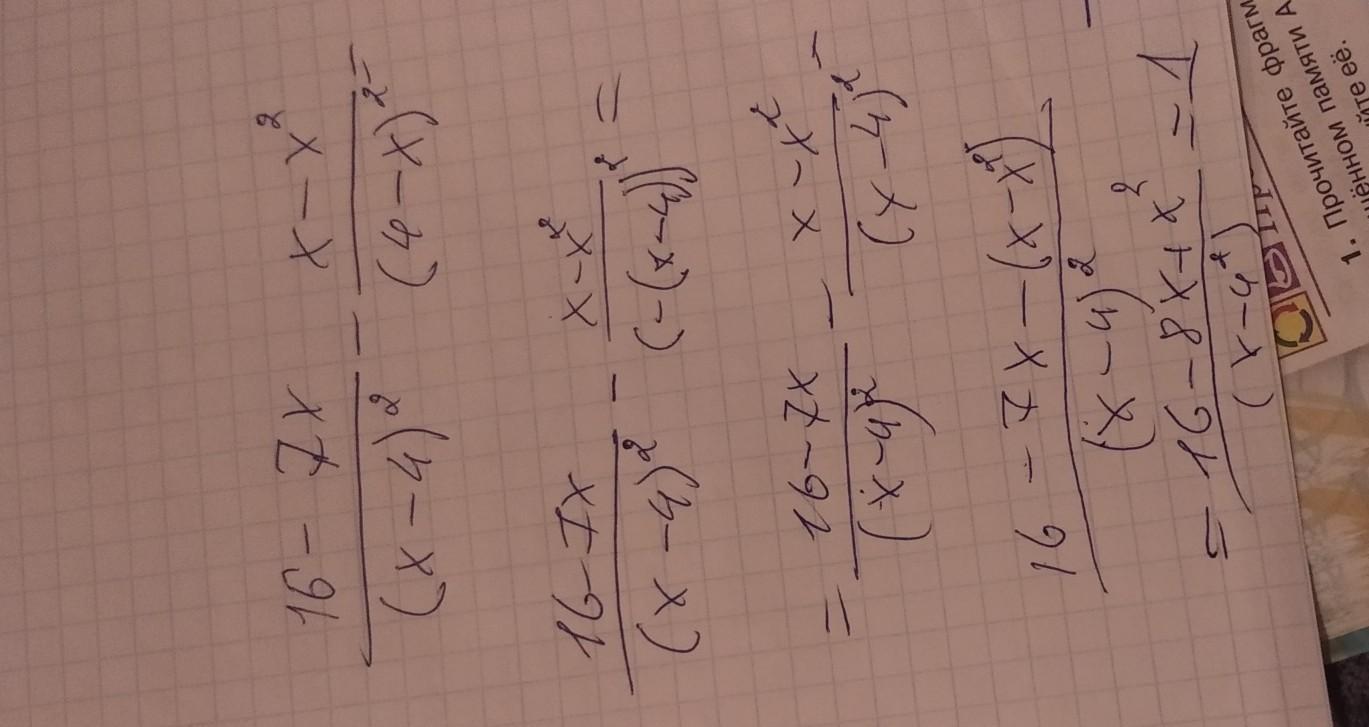 (16 - 7x)/(x - 4)² - (x - x²)/(4 - x)² =
(16 - 7x)/(x - 4)² - (x - x²)/(-(x - 4))² =
= (16 - 7x)/(x - 4)² - (x - x²)/(x - 4)² =
(16 - 7x - (x - x²))/(x - 4)² =
= (16 - 8x + x²)/(x - 4²) = 1
1. Прочитайте
фрагм
памяти А
йте её.